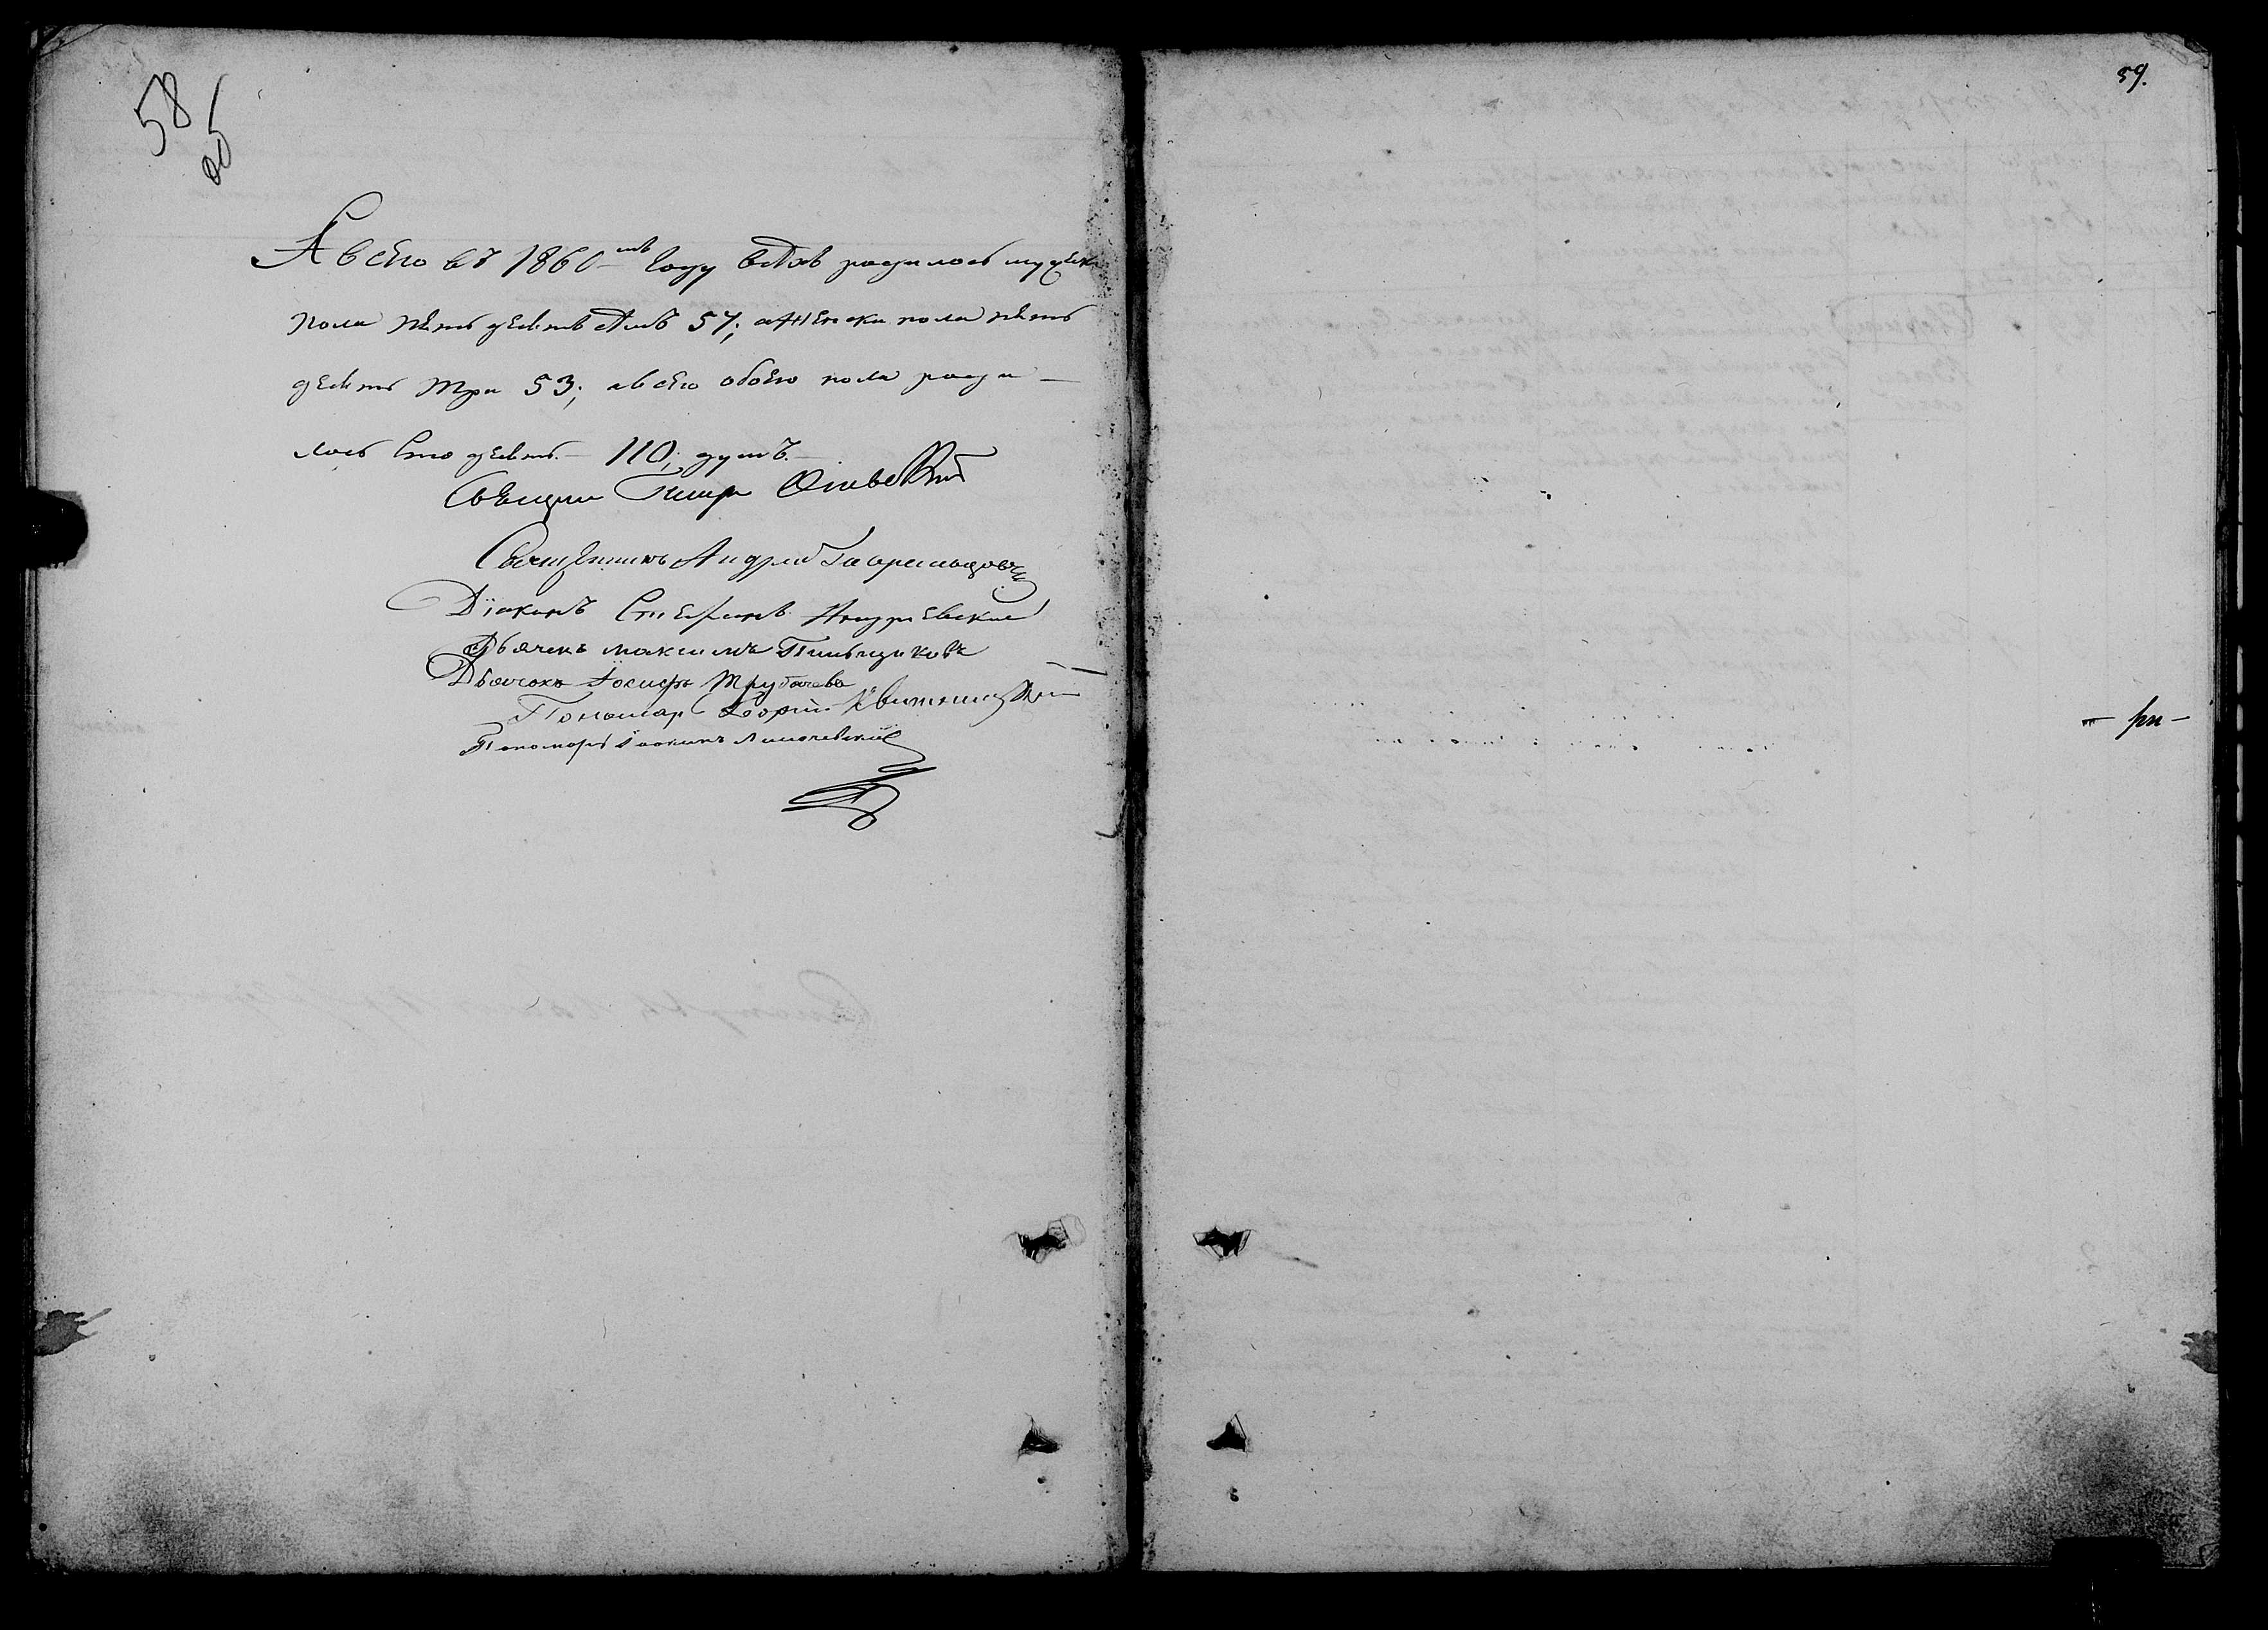 58
об
А всего въ 1860-мъ году всѣхъ родилось мужеск
пола пятьдесятъ семь 57; а женска пола пять
десятъ три 53; а всего обоего пола роди-
лось сто десять – 110; душъ. –
Священн
Священникъ Андрей
Діаконъ Стефанъ Андріевскій
Дьячекъ Максимъ Пильщиковъ
Дьячокъ Іосифъ Трубачевъ
Пономар Георгій
Пономарь Іоакимъ
59.